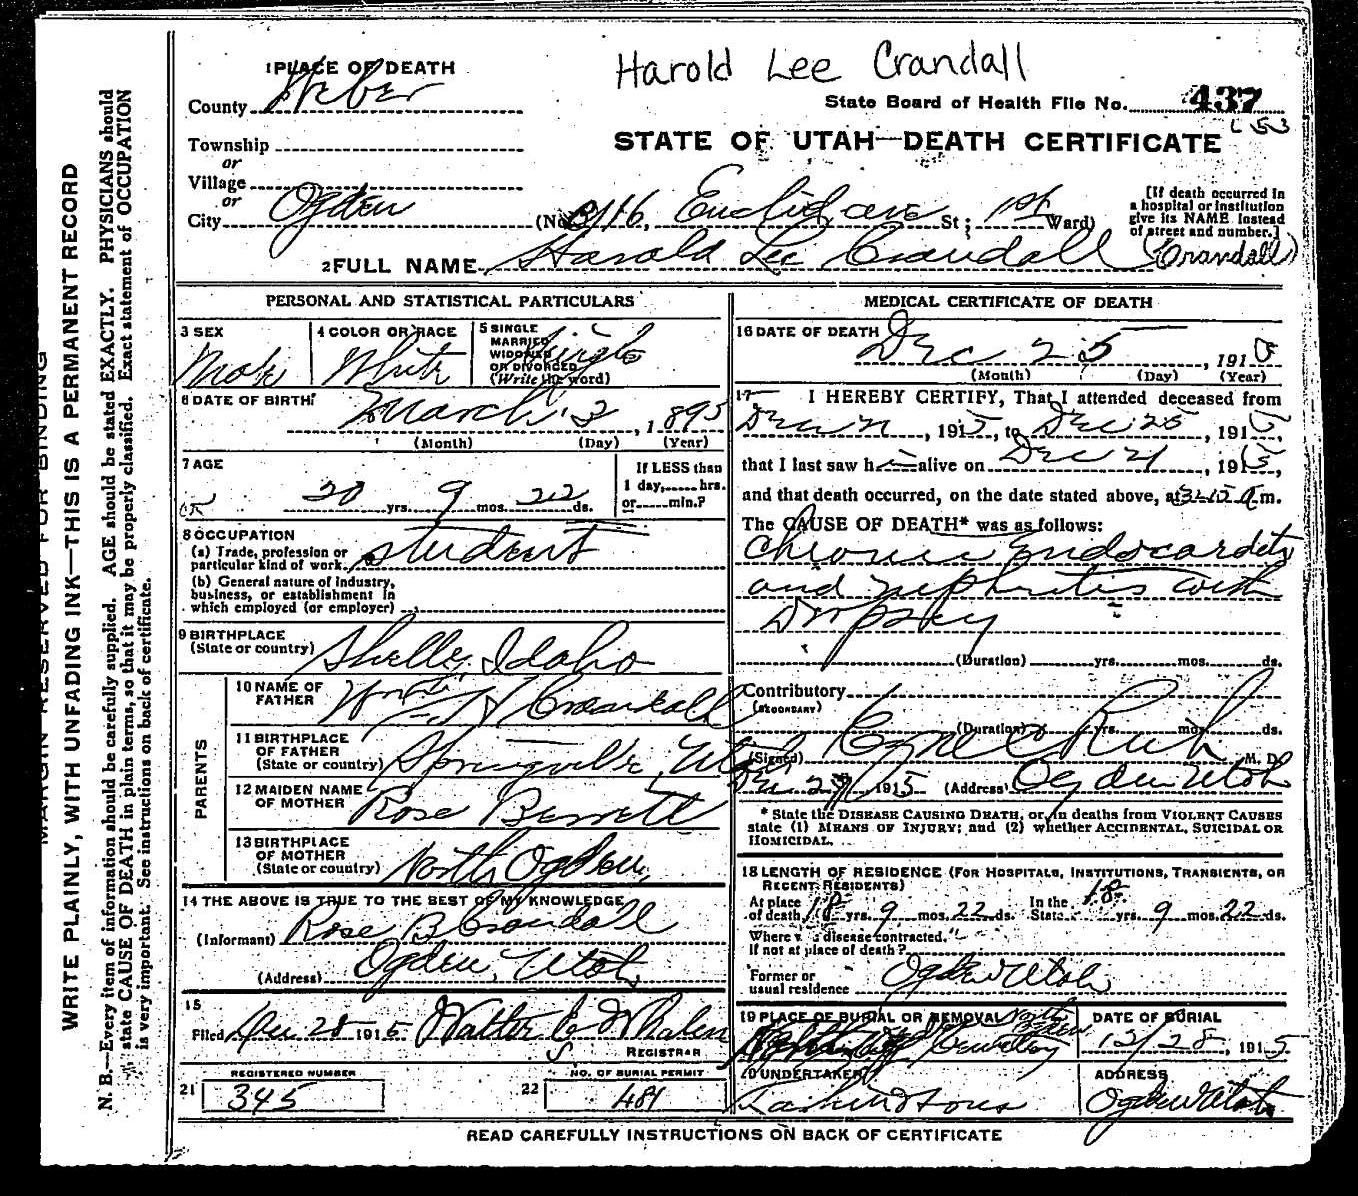 Harold Lee Crandall
1 PLACE OF DEATH
County Weber
State Board of Health File No. 437
L 53
STATE OF UTAH—DEATH CERTIFICATE
Township
or
Village
or
City Ogden (No. 3116, Euclid ave St; 1st Ward)
[If death occurred in
a hospital or institution
give its NAME instead
of street and number.]
2 FULL NAME Harold Lee Crandall (Crandall)
PERSONAL AND STATISTICAL PARTICULARS
3 SEX
Male
4 COLOR OR RACE
White
5 SINGLE
MARRIED
WIDOWED
OR DIVORCED
(Write the word)
Single
6 DATE OF BIRTH
March 3, 1895
(Month) (Day) (Year)
7 AGE
20 yrs. 9 mos. 22 ds.
If LESS than
1 day, hrs.
or min.?
8 OCCUPATION
(a) Trade, profession or
particular kind of work. Student
(b) General nature of industry,
business, or establishment in
which employed (or employer)
9 BIRTHPLACE
(State or country) Shelly, Idaho
PARENTS
10 NAME OF
FATHER Crandall
11 BIRTHPLACE
OF FATHER
(State or country) Springville, Utah
12 MAIDEN NAME
OF MOTHER Rose Berrett
13 BIRTHPLACE
OF MOTHER
(State or country) North Ogden,
14 THE ABOVE IS TRUE TO THE BEST OF MY KNOWLEDGE
(Informant) Rose B Crandall
(Address) Ogden, Utah
15
Filed Dec 28 1915 Walter C Whalen
REGISTRAR
REGISTERED NUMBER
21 345
NO. OF BURIAL PERMIT
22 481
MEDICAL CERTIFICATE OF DEATH
16 DATE OF DEATH
Dec 25, 1915
(Month) (Day) (Year)
17 I HEREBY CERTIFY, That I attended deceased from
Dec 21, 1915, to Dec 25, 1915,
that I last saw him alive on Dec 21, 1915,
and that death occurred, on the date stated above, at 3:15 a.m.
The CAUSE OF DEATH* was as follows:
Chronic Endocarditis
and nephritis with
Dropsey
(Duration) yrs. mos. ds.
Contributory
(SECONDARY)
(Duration) yrs. mos. ds.
(Signed) Rich M. D.
1915 (Address) Ogden Utah
* State the DISEASE CAUSING DEATH, or, in deaths from VIOLENT CAUSES
state (1) MEANS OF INJURY; and (2) whether ACCIDENTAL, SUICIDAL OR
HOMICIDAL.
18 LENGTH OF RESIDENCE (FOR HOSPITALS, INSTITUTIONS, TRANSIENTS, OR
RECENT RESIDENTS)
At place
of death 18 yrs. 9 mos. 22 ds.
In the
State 18 yrs. 9 mos. 22 ds.
Where was disease contracted,
If not at place of death?
Former or
usual residence Ogden Utah
19 PLACE OF BURIAL OR REMOVAL
North Ogden Cemetery
DATE OF BURIAL
12/28, 1915
20 UNDERTAKER
Larkin & Sons
ADDRESS
Ogden Utah
READ CAREFULLY INSTRUCTIONS ON BACK OF CERTIFICATE
MARGIN RESERVED FOR BINDING
WRITE PLAINLY, WITH UNFADING INK—THIS IS A PERMANENT RECORD
N. B.—Every item of information should be carefully supplied. AGE should be stated EXACTLY. PHYSICIANS should
state CAUSE OF DEATH in plain terms, so that it may be properly classified. Exact statement of OCCUPATION
is very important. See instructions on back of certificate.